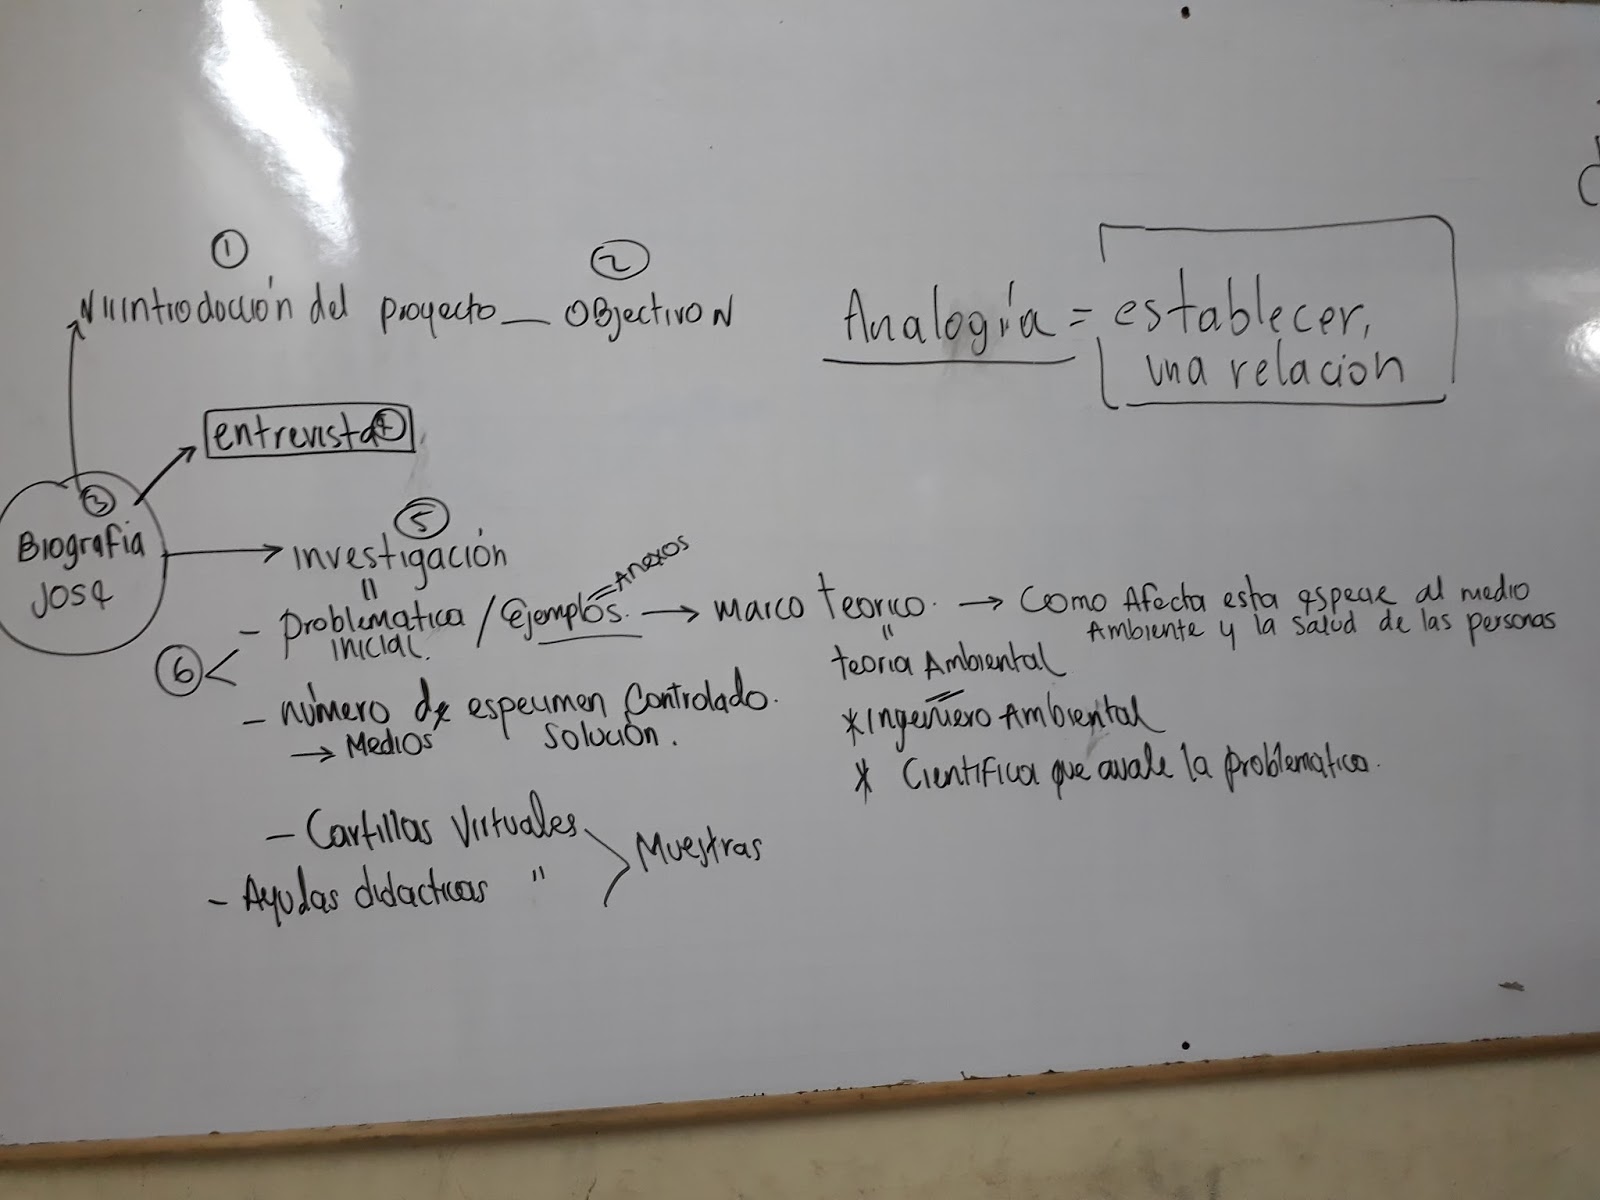 ① ②
Introdocción del proyecto — OBjectivo
Analogía = establecer,
una relacion
entrevista
③
Biografia
Jose
⑤
investigación
"
- problematica / Ejemplos. = Anexos → marco teorico. → Como Afecta esta especie al medio
inicial.
Ambiente y la salud de las personas
⑥ <
"
teoria Ambiental
- número de especimen Controlado.
→ Medios solución.
* Ingeniero Ambiental
* Cientifica que avale la problematica.
- Cartillas Virtuales
- Ayudas didacticas "
Muestras